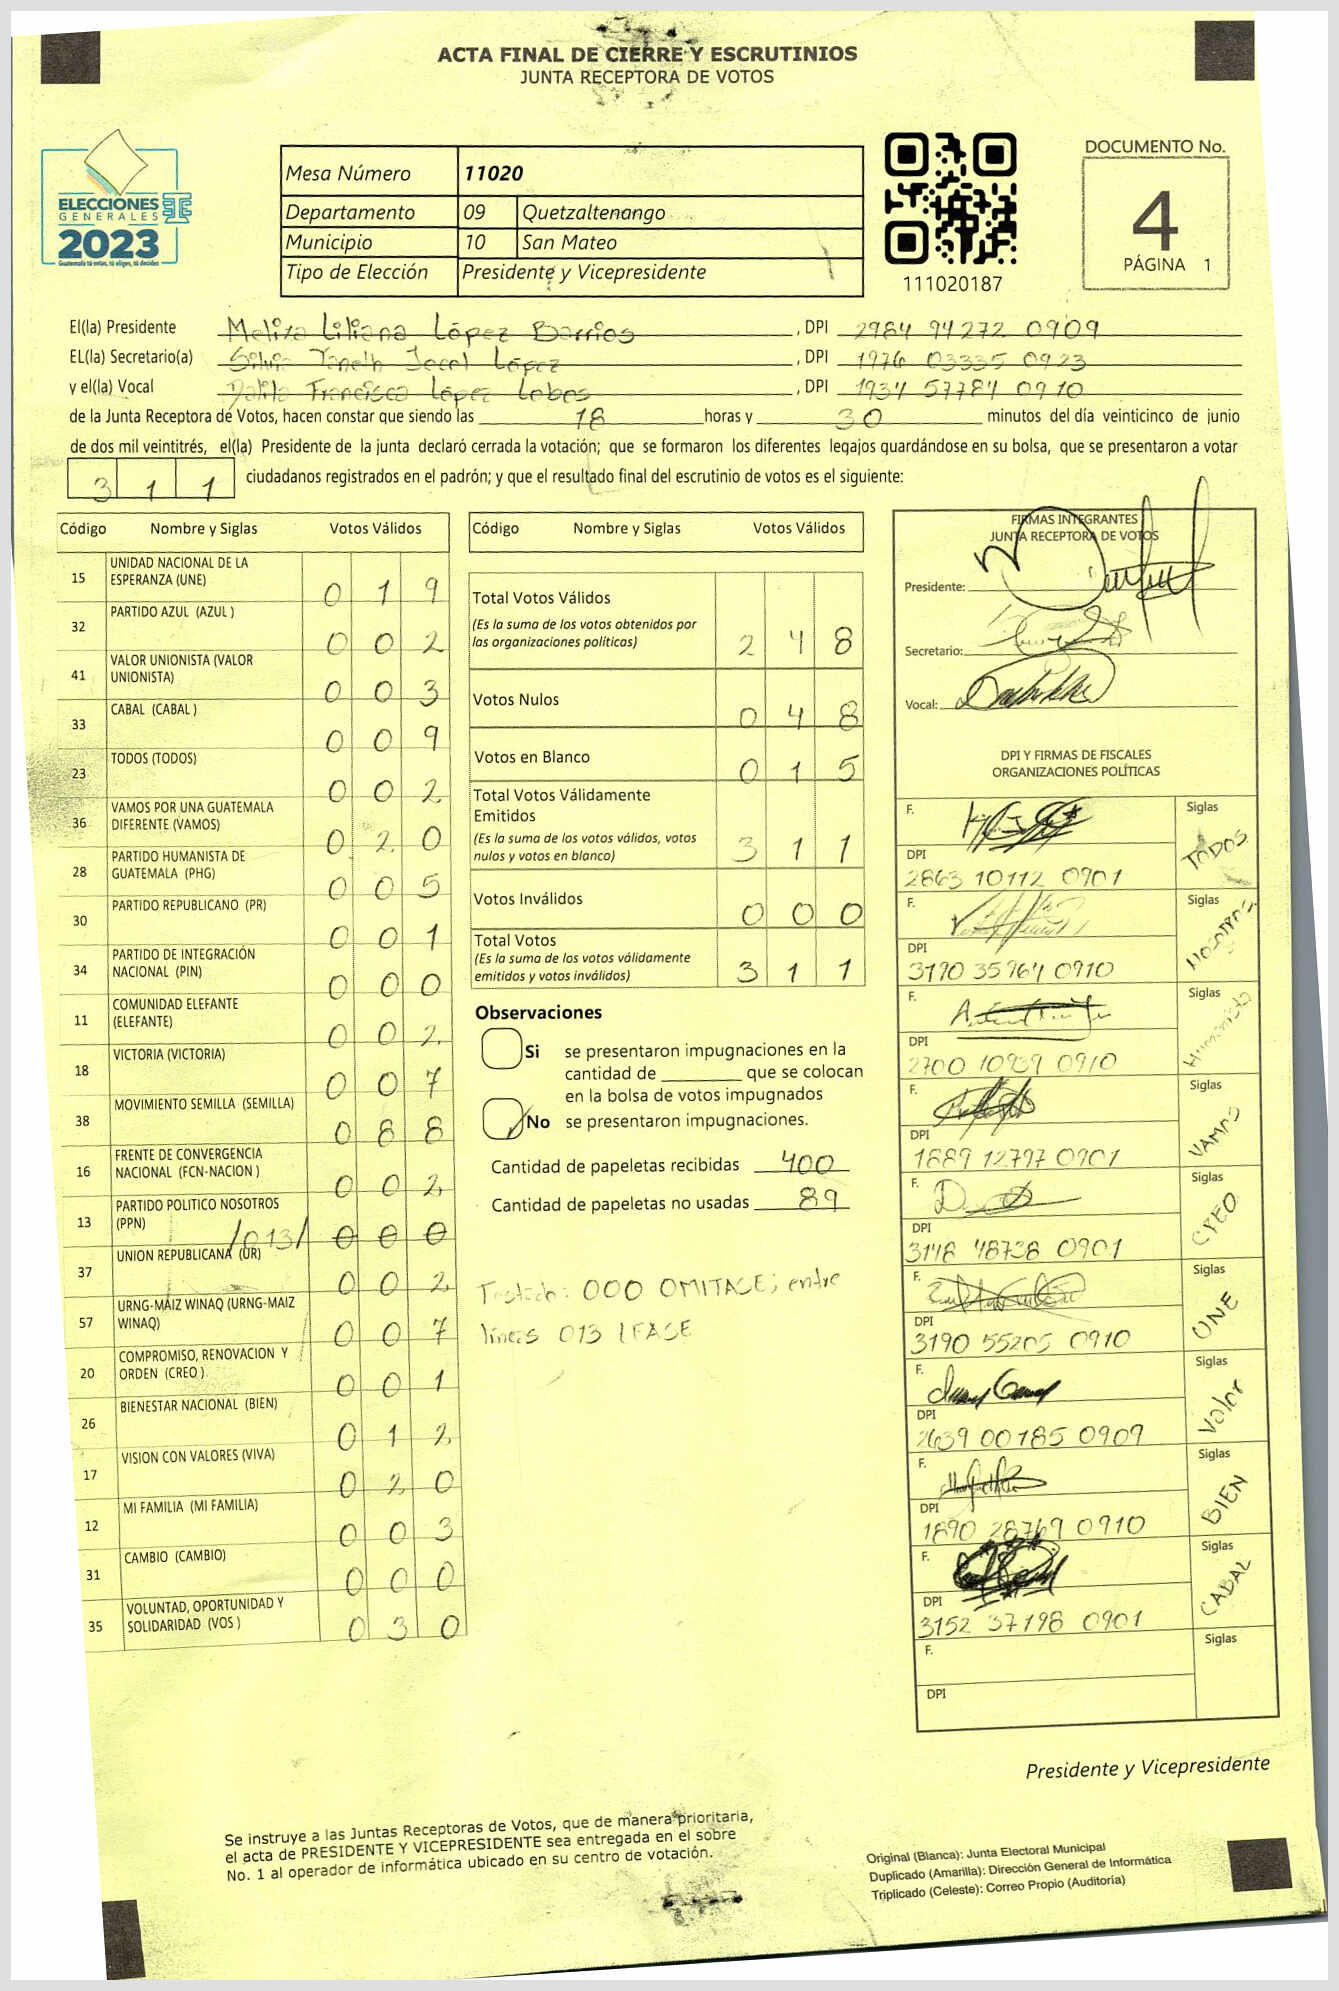 ACTA FINAL DE CIERRE Y ESCRUTINIOS
JUNTA RECEPTORA DE VOTOS
ELECCIONES
GENERALES
2023
Guatemala tú votas, tú eliges, tú decides
Mesa Número 11020
Departamento 09 Quetzaltenango
Municipio 10 San Mateo
Tipo de Elección Presidente y Vicepresidente
111020187
DOCUMENTO No.
4
PÁGINA 1
El(la) Presidente Meliza Liliana López Barrios, DPI 2984 94272 0909
EL(la) Secretario(a) Silvia Yaneth Jocol López, DPI 1976 03335 0923
y el(la) Vocal Dalila Francisca López Lobos, DPI 1934 57784 0910
de la Junta Receptora de Votos, hacen constar que siendo las 18 horas y 30 minutos del día veinticinco de junio
de dos mil veintitrés, el(la) Presidente de la junta declaró cerrada la votación; que se formaron los diferentes legajos guardándose en su bolsa, que se presentaron a votar
311 ciudadanos registrados en el padrón; y que el resultado final del escrutinio de votos es el siguiente:
Código Nombre y Siglas Votos Válidos
15 UNIDAD NACIONAL DE LA ESPERANZA (UNE) 0 1 9
32 PARTIDO AZUL (AZUL ) 0 0 2
41 VALOR UNIONISTA (VALOR UNIONISTA) 0 0 3
33 CABAL (CABAL ) 0 0 9
23 TODOS (TODOS) 0 0 2
36 VAMOS POR UNA GUATEMALA DIFERENTE (VAMOS) 0 2 0
28 PARTIDO HUMANISTA DE GUATEMALA (PHG) 0 0 5
30 PARTIDO REPUBLICANO (PR) 0 0 1
34 PARTIDO DE INTEGRACIÓN NACIONAL (PIN) 0 0 0
11 COMUNIDAD ELEFANTE (ELEFANTE) 0 0 2
18 VICTORIA (VICTORIA) 0 0 7
38 MOVIMIENTO SEMILLA (SEMILLA) 0 8 8
16 FRENTE DE CONVERGENCIA NACIONAL (FCN-NACION ) 0 0 2
13 PARTIDO POLITICO NOSOTROS (PPN) /013/ 0 0 0
37 UNION REPUBLICANA (UR) 0 0 2
57 URNG-MAIZ WINAQ (URNG-MAIZ WINAQ) 0 0 7
20 COMPROMISO, RENOVACION Y ORDEN (CREO ) 0 0 1
26 BIENESTAR NACIONAL (BIEN) 0 1 2
17 VISION CON VALORES (VIVA) 0 2 0
12 MI FAMILIA (MI FAMILIA) 0 0 3
31 CAMBIO (CAMBIO) 0 0 0
35 VOLUNTAD, OPORTUNIDAD Y SOLIDARIDAD (VOS ) 0 3 0
Código Nombre y Siglas Votos Válidos
Total Votos Válidos
(Es la suma de los votos obtenidos por
las organizaciones políticas) 2 4 8
Votos Nulos 0 4 8
Votos en Blanco 0 1 5
Total Votos Válidamente
Emitidos
(Es la suma de los votos válidos, votos
nulos y votos en blanco) 3 1 1
Votos Inválidos 0 0 0
Total Votos
(Es la suma de los votos válidamente
emitidos y votos inválidos) 3 1 1
Observaciones
Si se presentaron impugnaciones en la
cantidad de ________ que se colocan
en la bolsa de votos impugnados
No se presentaron impugnaciones.
Cantidad de papeletas recibidas 400
Cantidad de papeletas no usadas 89
Testado: 000 OMITASE; entre
líneas 013 LEASE
FIRMAS INTEGRANTES
JUNTA RECEPTORA DE VOTOS
Presidente:
Secretario:
Vocal:
DPI Y FIRMAS DE FISCALES
ORGANIZACIONES POLÍTICAS
F. Siglas TODOS
DPI
2863 10112 0901
F. Siglas NOSOTROS
DPI
3190 35964 0910
F. Siglas Humanista
DPI
2700 10939 0910
F. Siglas VAMOS
DPI
1889 12797 0901
F. Siglas CREO
DPI
3148 48738 0901
F. Siglas UNE
DPI
3190 55205 0910
F. Siglas Valor
DPI
2639 00185 0909
F. Siglas BIEN
DPI
1890 28769 0910
F. Siglas CABAL
DPI
3152 37198 0901
F. Siglas
DPI
Presidente y Vicepresidente
Se instruye a las Juntas Receptoras de Votos, que de manera prioritaria,
el acta de PRESIDENTE Y VICEPRESIDENTE sea entregada en el sobre
No. 1 al operador de informática ubicado en su centro de votación.
Original (Blanca): Junta Electoral Municipal
Duplicado (Amarilla): Dirección General de Informática
Triplicado (Celeste): Correo Propio (Auditoría)